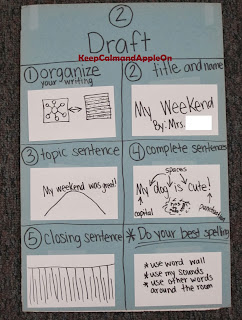 ②
Draft
KeepCalmandAppleOn
① organize
your writing
② title and name
My Weekend
By: Mrs.
③ topic sentence
My weekend was great!
④ complete sentences
spaces
My dog is cute!
capital
punctuation
⑤ closing sentence
* Do your best spelling
* use word wall
* use my sounds
* use other words
around the room